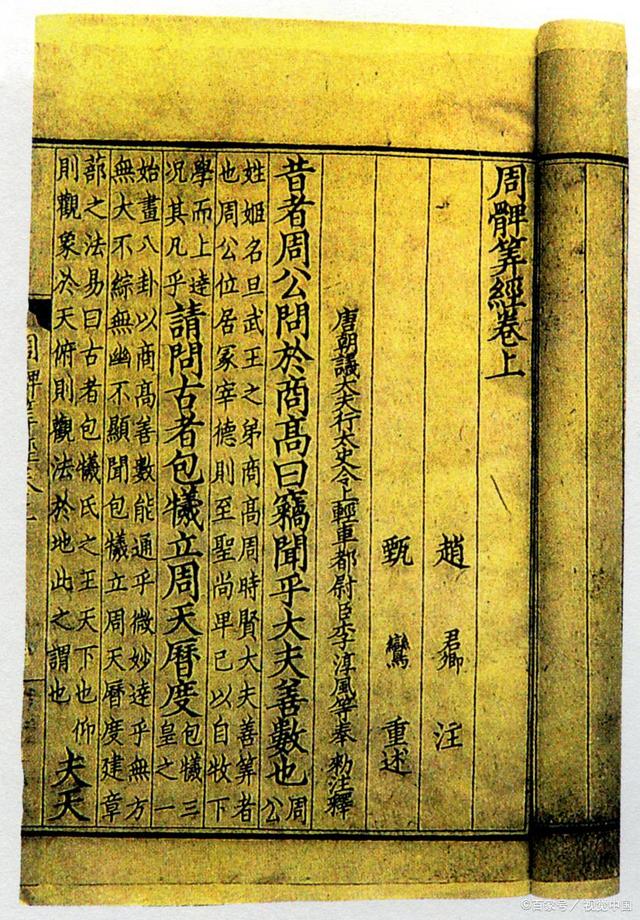 周髀筭經卷上
趙君卿注
甄鸞重述
唐朝議大夫行太史令上輕車都尉臣李淳風等奉勅注釋
昔者周公問於商髙曰竊聞乎大夫善數也周公
姓姬名旦武王之弟商髙周時賢大夫善筭者
也周公位居冢宰德則至聖尚卑己以自牧下
學而上達況其凡乎請問古者包犧立周天曆度包犧三皇之一
始畫八卦以商髙善數能通乎微妙達乎無方
無大不綜無幽不顯聞包犧立周天曆度建章
蔀之法易曰古者包犧氏之王天下也仰
則觀象於天俯則觀法於地此之謂也夫天
©百家号／视觉中国